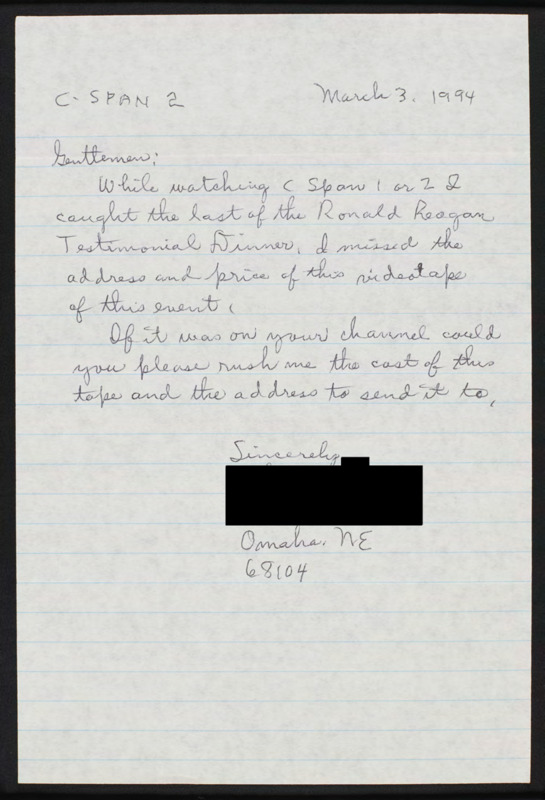 C-SPAN 2
March 3, 1994
Gentlemen:
While watching C Span 1 or 2 I
caught the last of the Ronald Reagan
Testimonial Dinner, I missed the
address and price of this videotape
of this event.
If it was on your channel could
you please rush me the cost of this
tape and the address to send it to.
Sincerely
Omaha, NE
68104